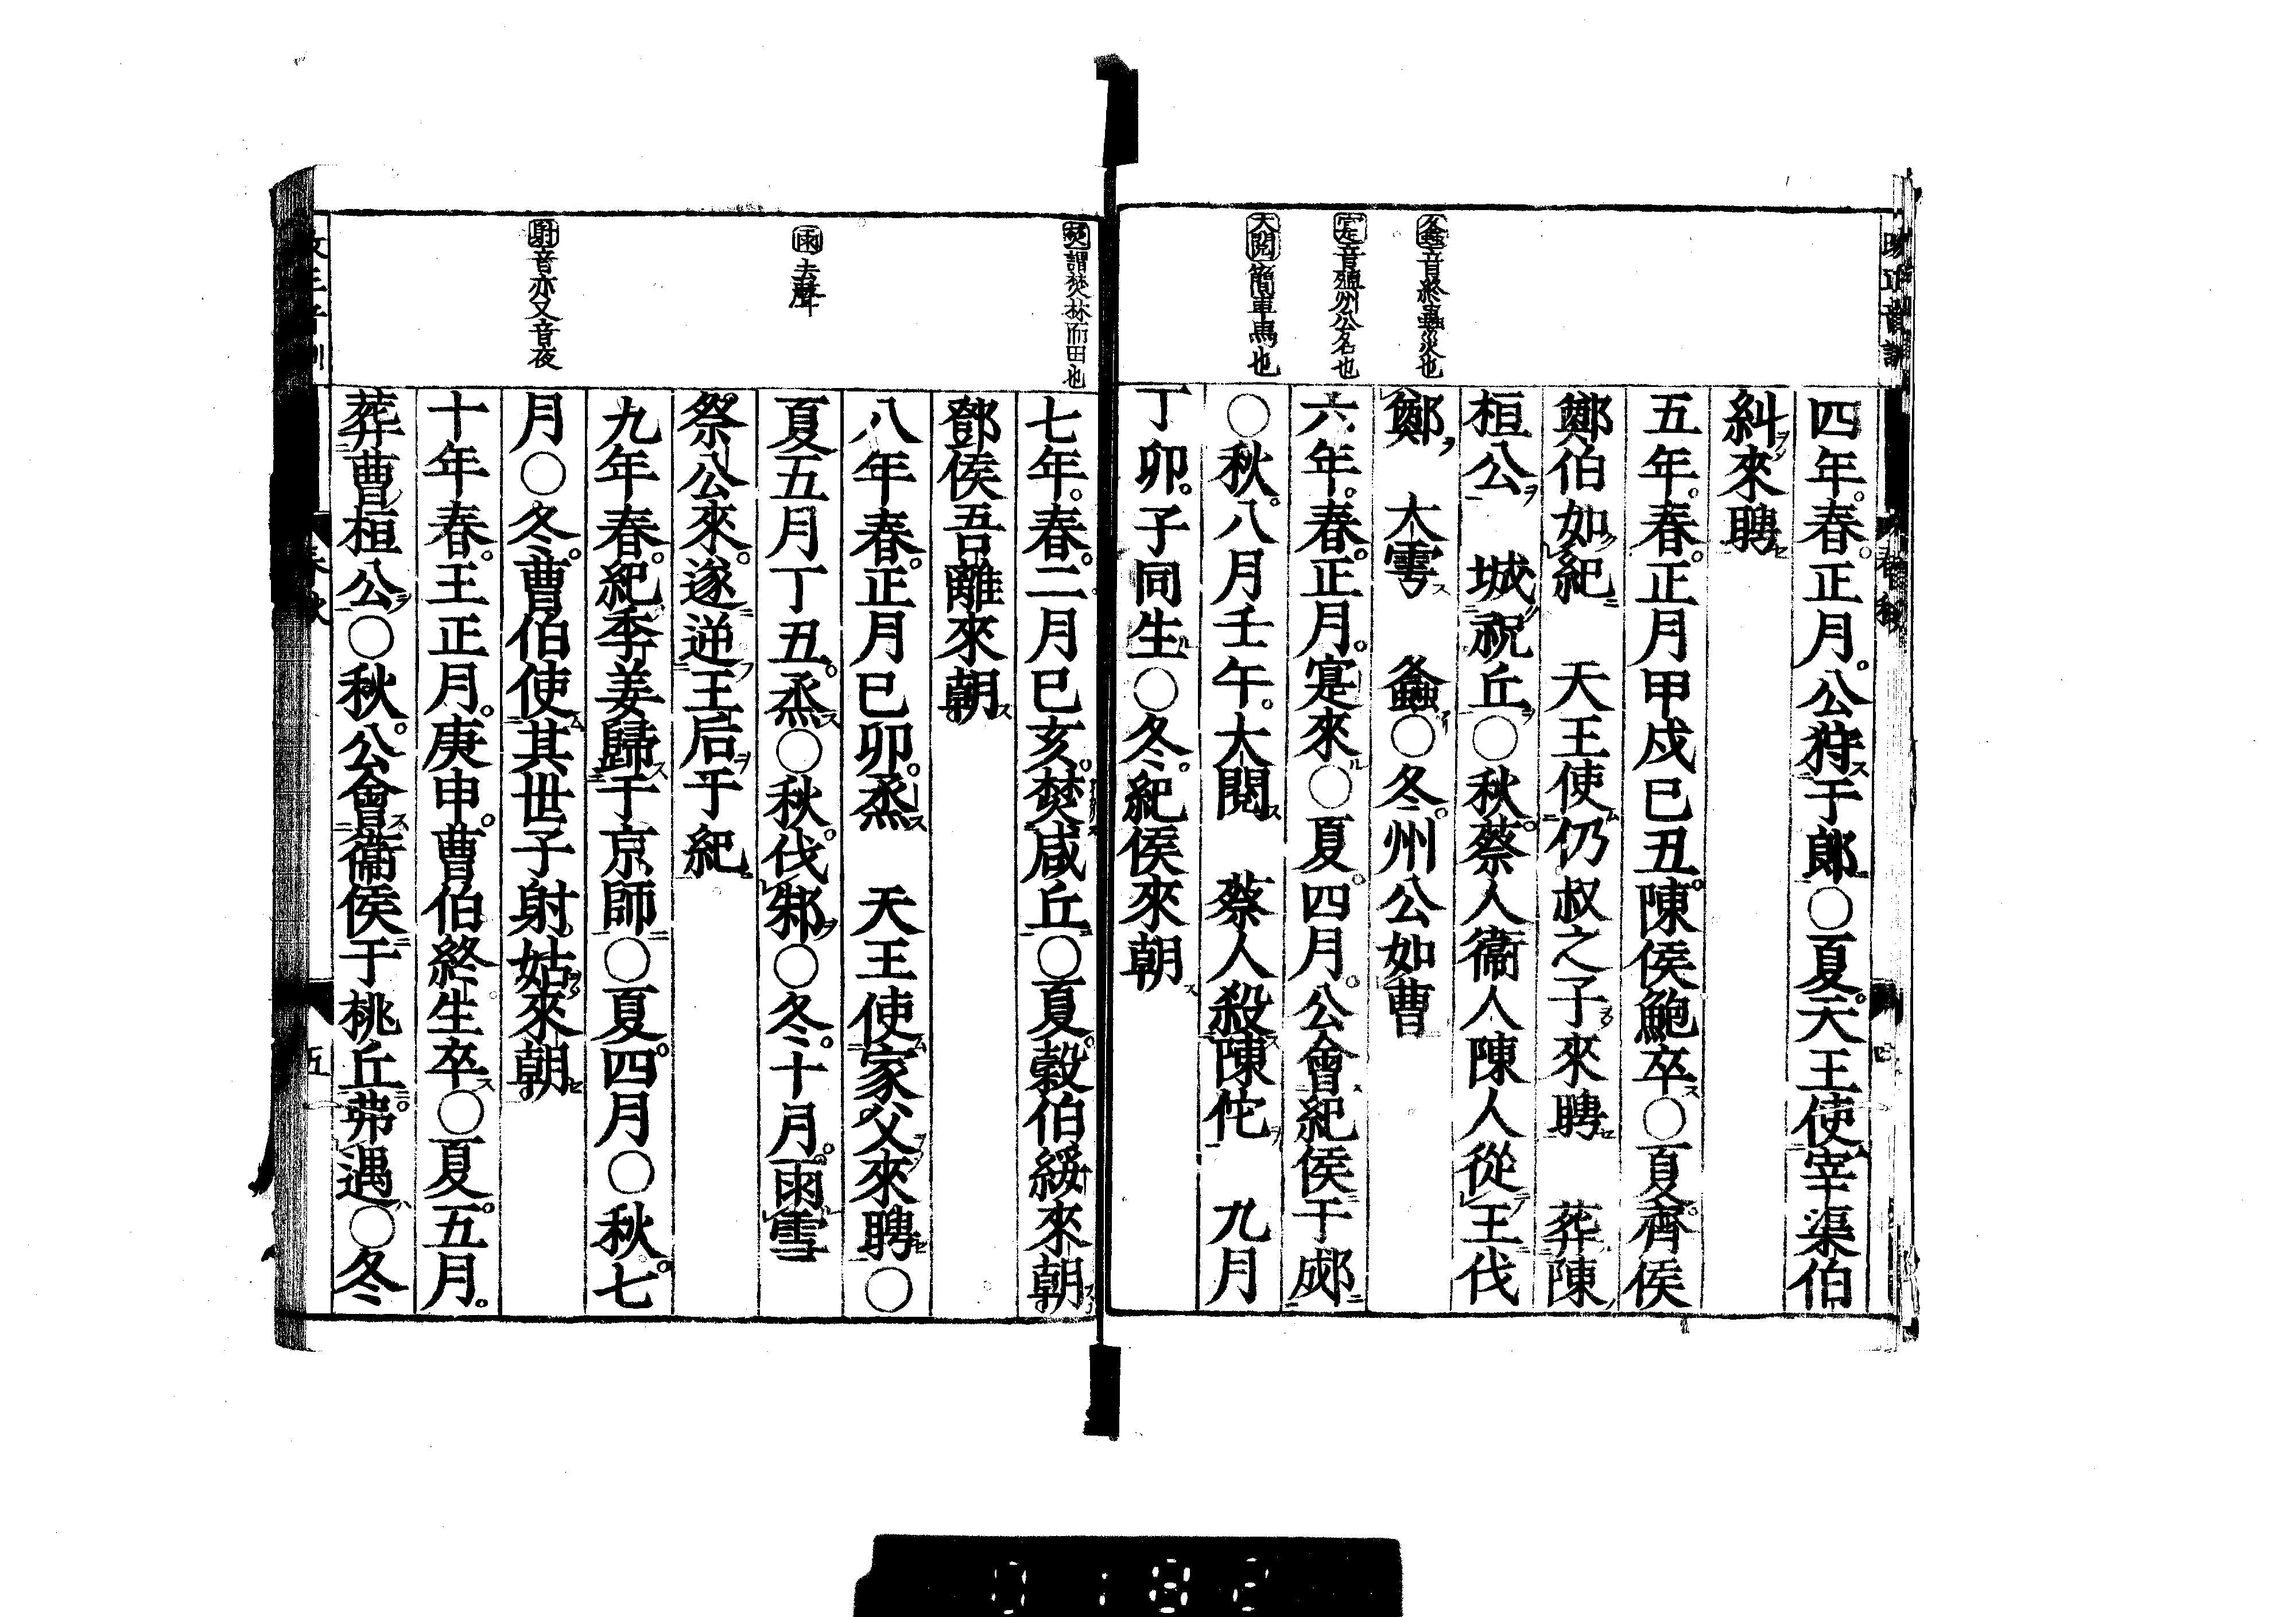 螽音終蟲災也
寔音殖州公名也
大閱簡車馬也
四年春正月公狩于郎○夏天王使宰渠伯
糾來聘
五年春正月甲戌己丑陳侯鮑卒○夏齊侯
鄭伯如紀　天王使仍叔之子來聘　葬陳
桓公　城祝丘○秋蔡人衞人陳人從王伐
鄭　大雩　螽○冬州公如曹
六年春正月寔來○夏四月公會紀侯于郕
○秋八月壬午大閱　蔡人殺陳佗　九月
丁卯子同生○冬紀侯來朝
焚謂焚林而田也
雨去聲
射音亦又音夜
七年春二月已亥焚咸丘○夏穀伯綏來朝
鄧侯吾離來朝
八年春正月已卯烝　天王使家父來聘○
夏五月丁丑烝○秋伐邾○冬十月雨雪
祭公來遂逆王后于紀
九年春紀季姜歸于京師○夏四月○秋七
月○冬曹伯使其世子射姑來朝
十年春王正月庚申曹伯終生卒○夏五月
葬曹桓公○秋公會衞侯于桃丘弗遇○冬
五
0182